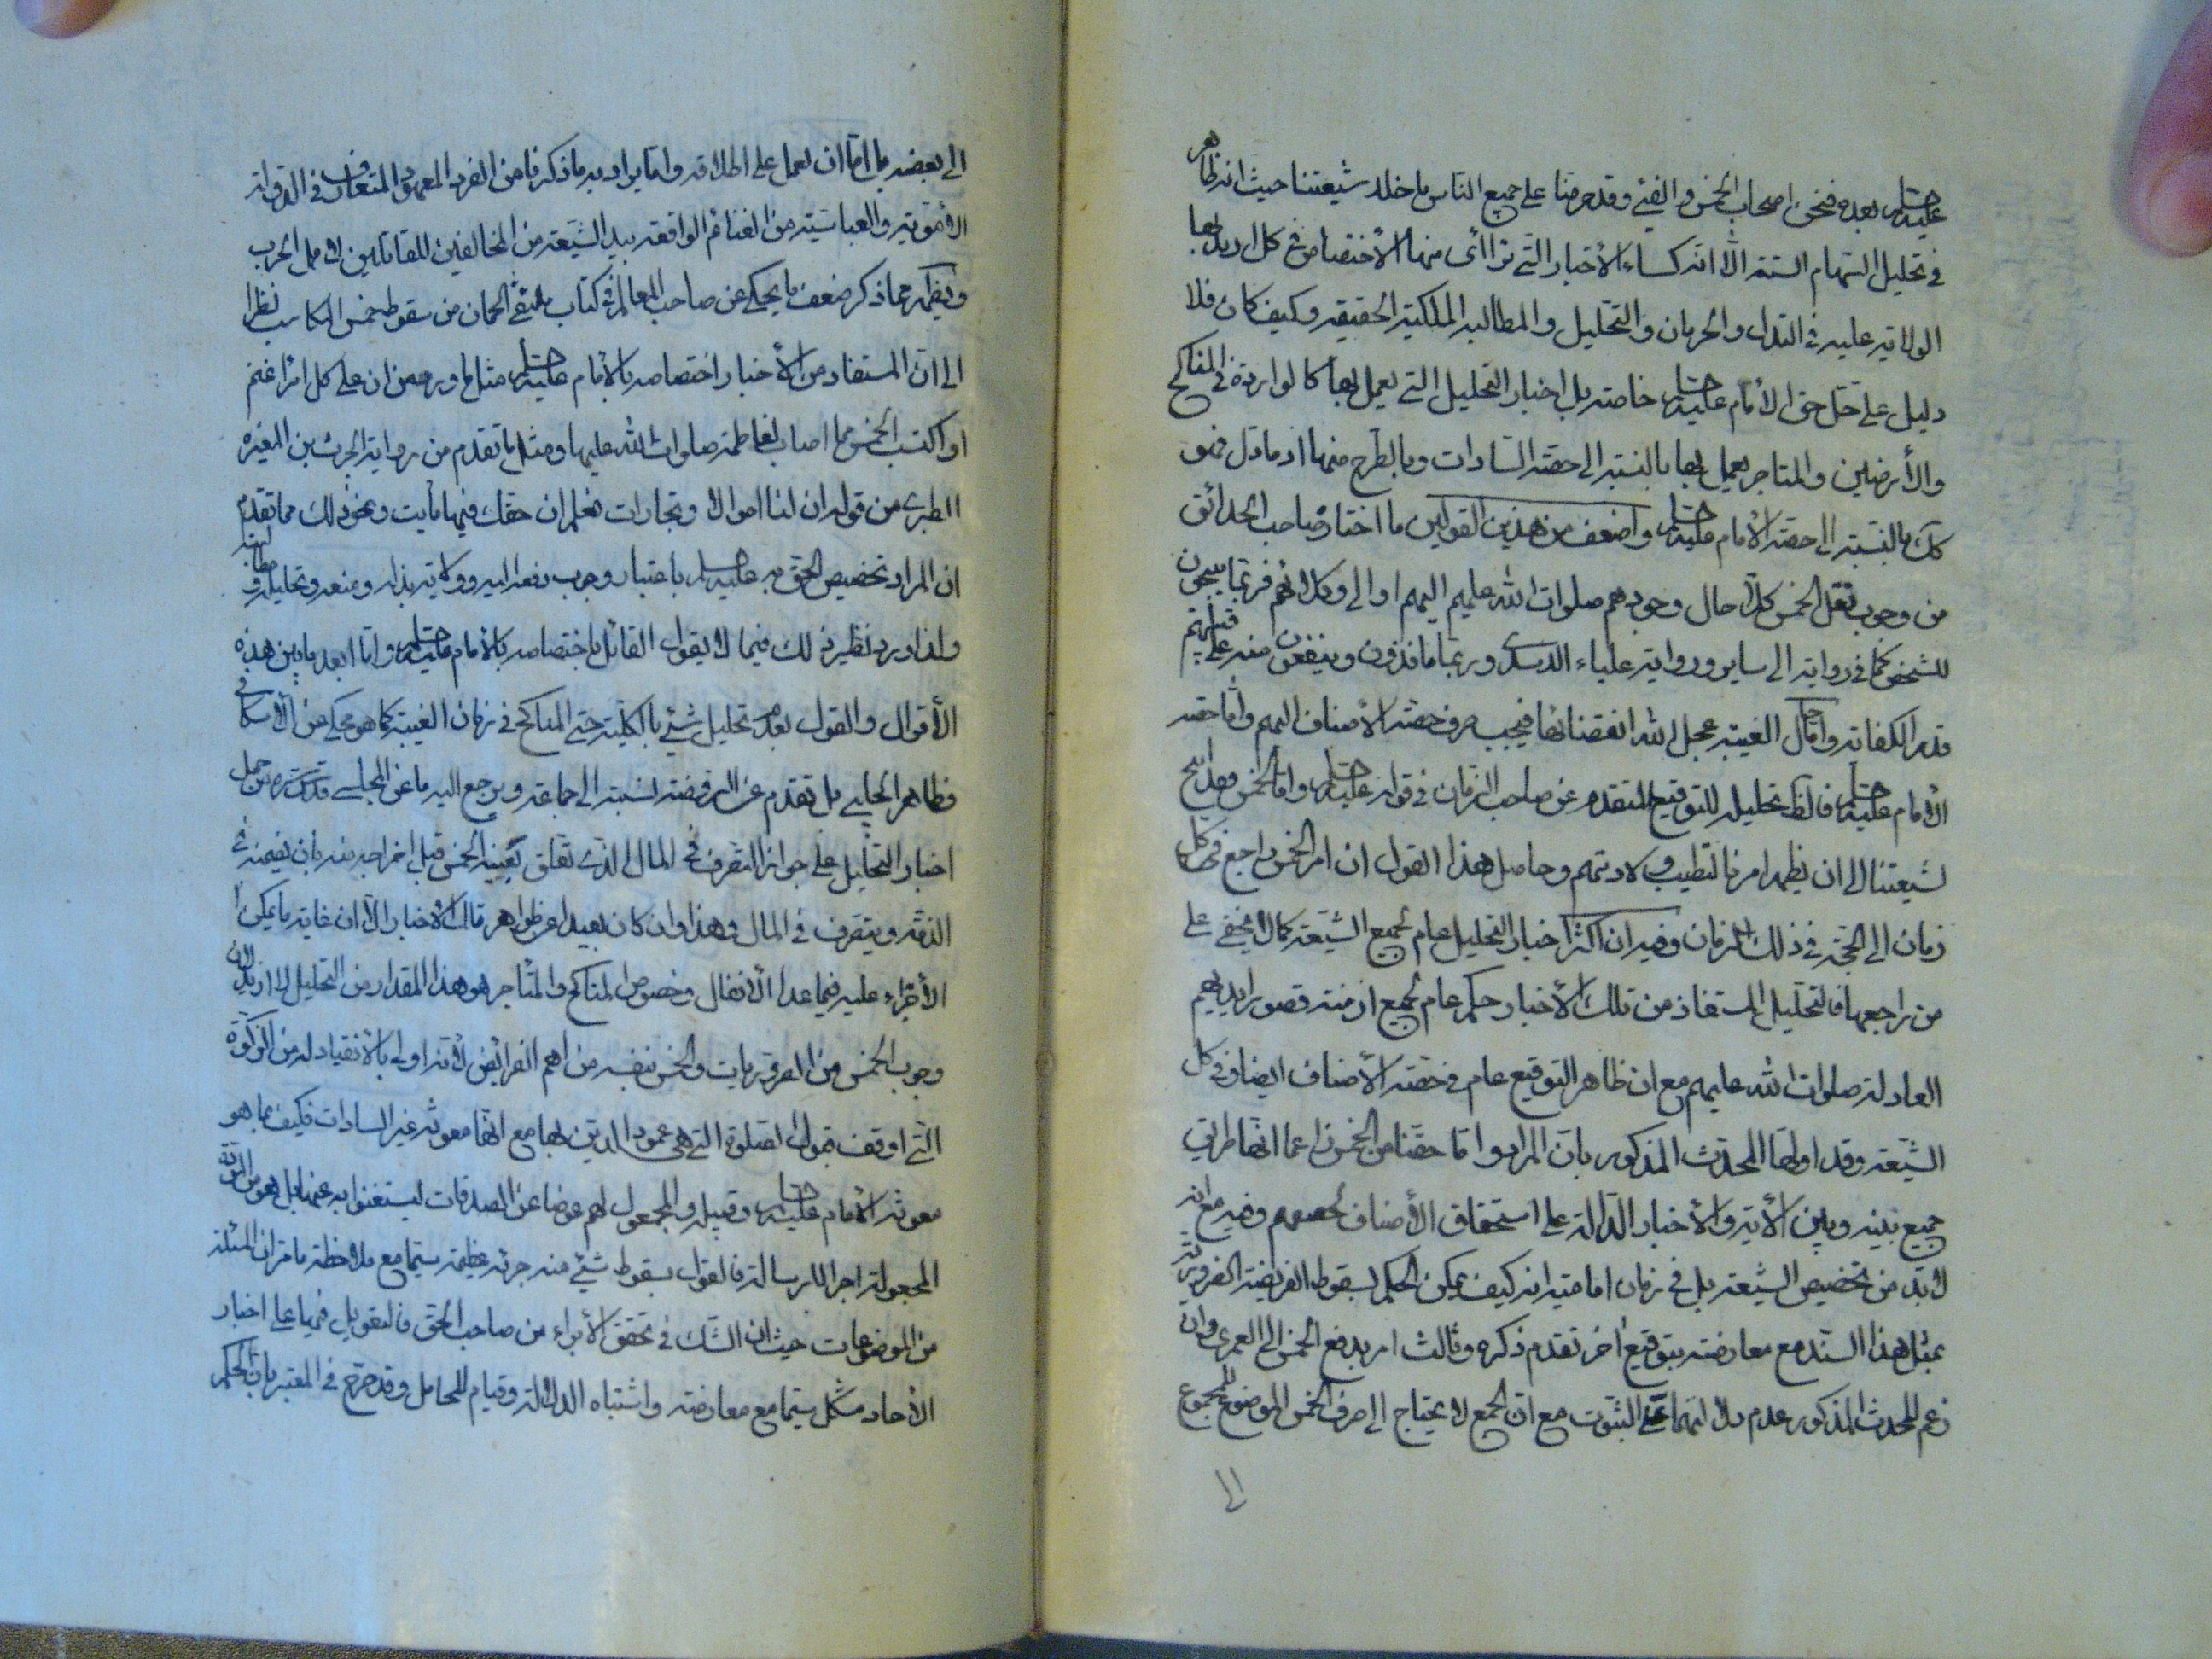 عليه السلام بعده فنحن اصحاب الخمس والفيئ وقد حرمنا على جميع الناس ما خلا شيعتنا حيث انه ظاهر
في تحليل السهام الستة الا انه كساير الاخبار التي تراأى منها الاختصاص في كل اريد بها
الولاية عليه في البذل والحرمان والتحليل والمطالبة الملكية الحقيقية وكيف كان فلا
دليل على حل حق الامام عليه السلام خاصة بل اخبار التحليل التي يعمل بها كالواردة في المناكح
والأرضين والمتاجر يعمل بها بالنسبة الى حصة السادات وما يطرح منها
كك بالنسبة الى حصة الامام عليه السلام واضعف من هذين القولين ما اختاره صاحب الحدائق
من وجوب نقل الخمس كلا حال وجودهم صلوات الله عليهم اليهم او الى وكلائهم فربما يبيحون
للشخص كما في رواية ورواية علباء الاسدي وربما يأخذون وينفقون منه على قبيلهم
قدر الكفاية واما حال الغيبة عجل الله انقضائها فيجب صرف حصة الاصناف اليهم واما حصة
الامام عليه السلام فالظ تحليله للتوقيع المتقدم عن صاحب الزمان في قوله عليه السلام واما الخمس فقد ابيح
لشيعتنا الى ان يظهر امرنا لتطيب ولادتهم وحاصل هذا القول ان امر الخمس راجع في كل
زمان الى الحجة في ذلك الزمان وفيه ان اكثر اخبار التحليل عام لجميع الشيعة كما لا يخفى على
من راجعها فالتحليل المستفاد من تلك الاخبار حكم عام لجميع ازمنة قصور ايديهم
العادلة صلوات الله عليهم مع ان ظاهر التوقيع عام في حصة الاصناف ايضا وفي كل
الشيعة وقد اولها المحدث المذكور بان المراد واما حقنا من الخمس
جميع بينه وبين الأية والأخبار الدالة على استحقاق الأصناف لحصصهم وفيه مع انه
لا بد من تخصيص الشيعة بل في زمان امامته انه كيف يمكن الحكم بسقوط الفريضة الضرورية
بمثل هذا السند مع معارضته بتوقيع أخر تقدم ذكره وثالث امر بدفع الخمس الى العمري وان
زعم المحدث المذكور عدم دلالتهما على الثبوت مع ان الجمع لا يحتاج الى صرف الخمس الموضوع للمجموع
الى
الى بعضه بل اما ان يعمل على اطلاقه واما يراد به ما ذكرنا من الفرد المعهود المتعارف في الدولة
الأموية والعباسية من الغنائم الواقعة بيد الشيعة من المخالفين المقاتلين لاهل الحرب
ويظهر مما ذكر ضعف ما يحكى عن صاحب المعالم في كتاب منتقى الجمان من سقوط خمس المكاسب نظرا
الى ان المستفاد من الأخبار اختصاصه بالأمام عليه السلام مثل ما ورد من ان على كل امرء غنم
او اكتسب الخمس مما اصاب لفاطمة صلوات الله عليها ومثل ما تقدم من رواية الحرث بن المغيرة
الطبرى من قوله ان لنا اموالا وتجارات نعلم ان حقك فيها ثابت ونحو ذلك مما تقدم
ان المراد تخصيص الحق به عليه السلم باعتبار وجوب دفعه اليه وولاية بذله ومنعه وتحليله ومطالبته
ولذا ورد نظير ذلك فيما لا يقول القائل باختصاصه بالامام عليه السلام واما ابعد ما بين هذه
الأقوال والقول بعدم تحليل شيئ بالكلية حتى المناكح في زمان الغيبة كما هو محكى عن الأسكافي
وظاهر الحلبي بل تقدم عن الروضة نسبته الى جماعة ويرجع اليه ما عن المجلسي من حمل
اخبار التحليل على جواز التصرف في المال الذى تعلق بعينه الخمس قبل اخراجه منه بان يضمنه في
الذمة ويتصرف في المال وهذا وان كان بعيدا عن ظواهر تلك الأخبار الا ان غاية ما يمكن
الأجتراء عليه فيما عدا الأنفال وخصوص المناكح والمتاجر هو هذا المقدار من التحليل لا ازيد لان
وجوب الخمس من الضروريات والخمس بنفسه من اهم الفرائض لأنه اولى بالأنقياد له من الزكوة
التي اوقف قبول الصلوة التي هي عمود الدين بها مع انها معونة غير السادات فكيف بما هو
معونة الأمام عليه السلام وقبيله والمجعول لهم عوضا عن الصدقات ليستغنوا به عنها بل هو من المودة
المجعولة اجرا للرسالة فالقول بسقوط شيئ منه جرئة عظيمة سيما مع ملاحظة ما مر ان المسئلة
من الموضوعات حيث ان الشك في تحقق الأبراء من صاحب الحق فالتعويل فيها على اخبار
الأحاد مشكل سيما مع معارضته واشتباه الدلالة وقيام المحامل وقد صرح في المعتبر بان الحكم